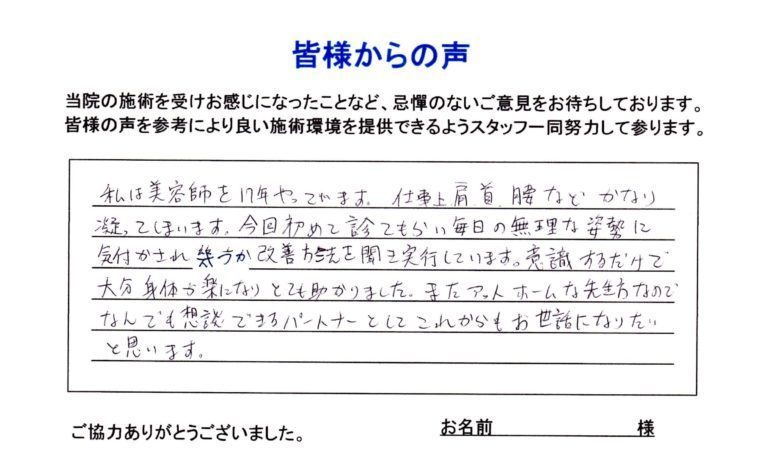 皆様からの声
当院の施術を受けお感じになったことなど、忌憚のないご意見をお待ちしております。
皆様の声を参考により良い施術環境を提供できるようスタッフ一同努力して参ります。
私は美容師を17年やっています。仕事上、肩、首、腰など かなり
凝ってしまいます。今回初めて診てもらい毎日の無理な姿勢に
気付かされ 幾つか 改善方法を聞き実行しています。意識するだけで
大分身体が楽になりとても助かりました。またアットホームな先生方なので
なんでも想談できるパートナーとしてこれからもお世話になりたい
と思います。
ご協力ありがとうございました。
お名前 様